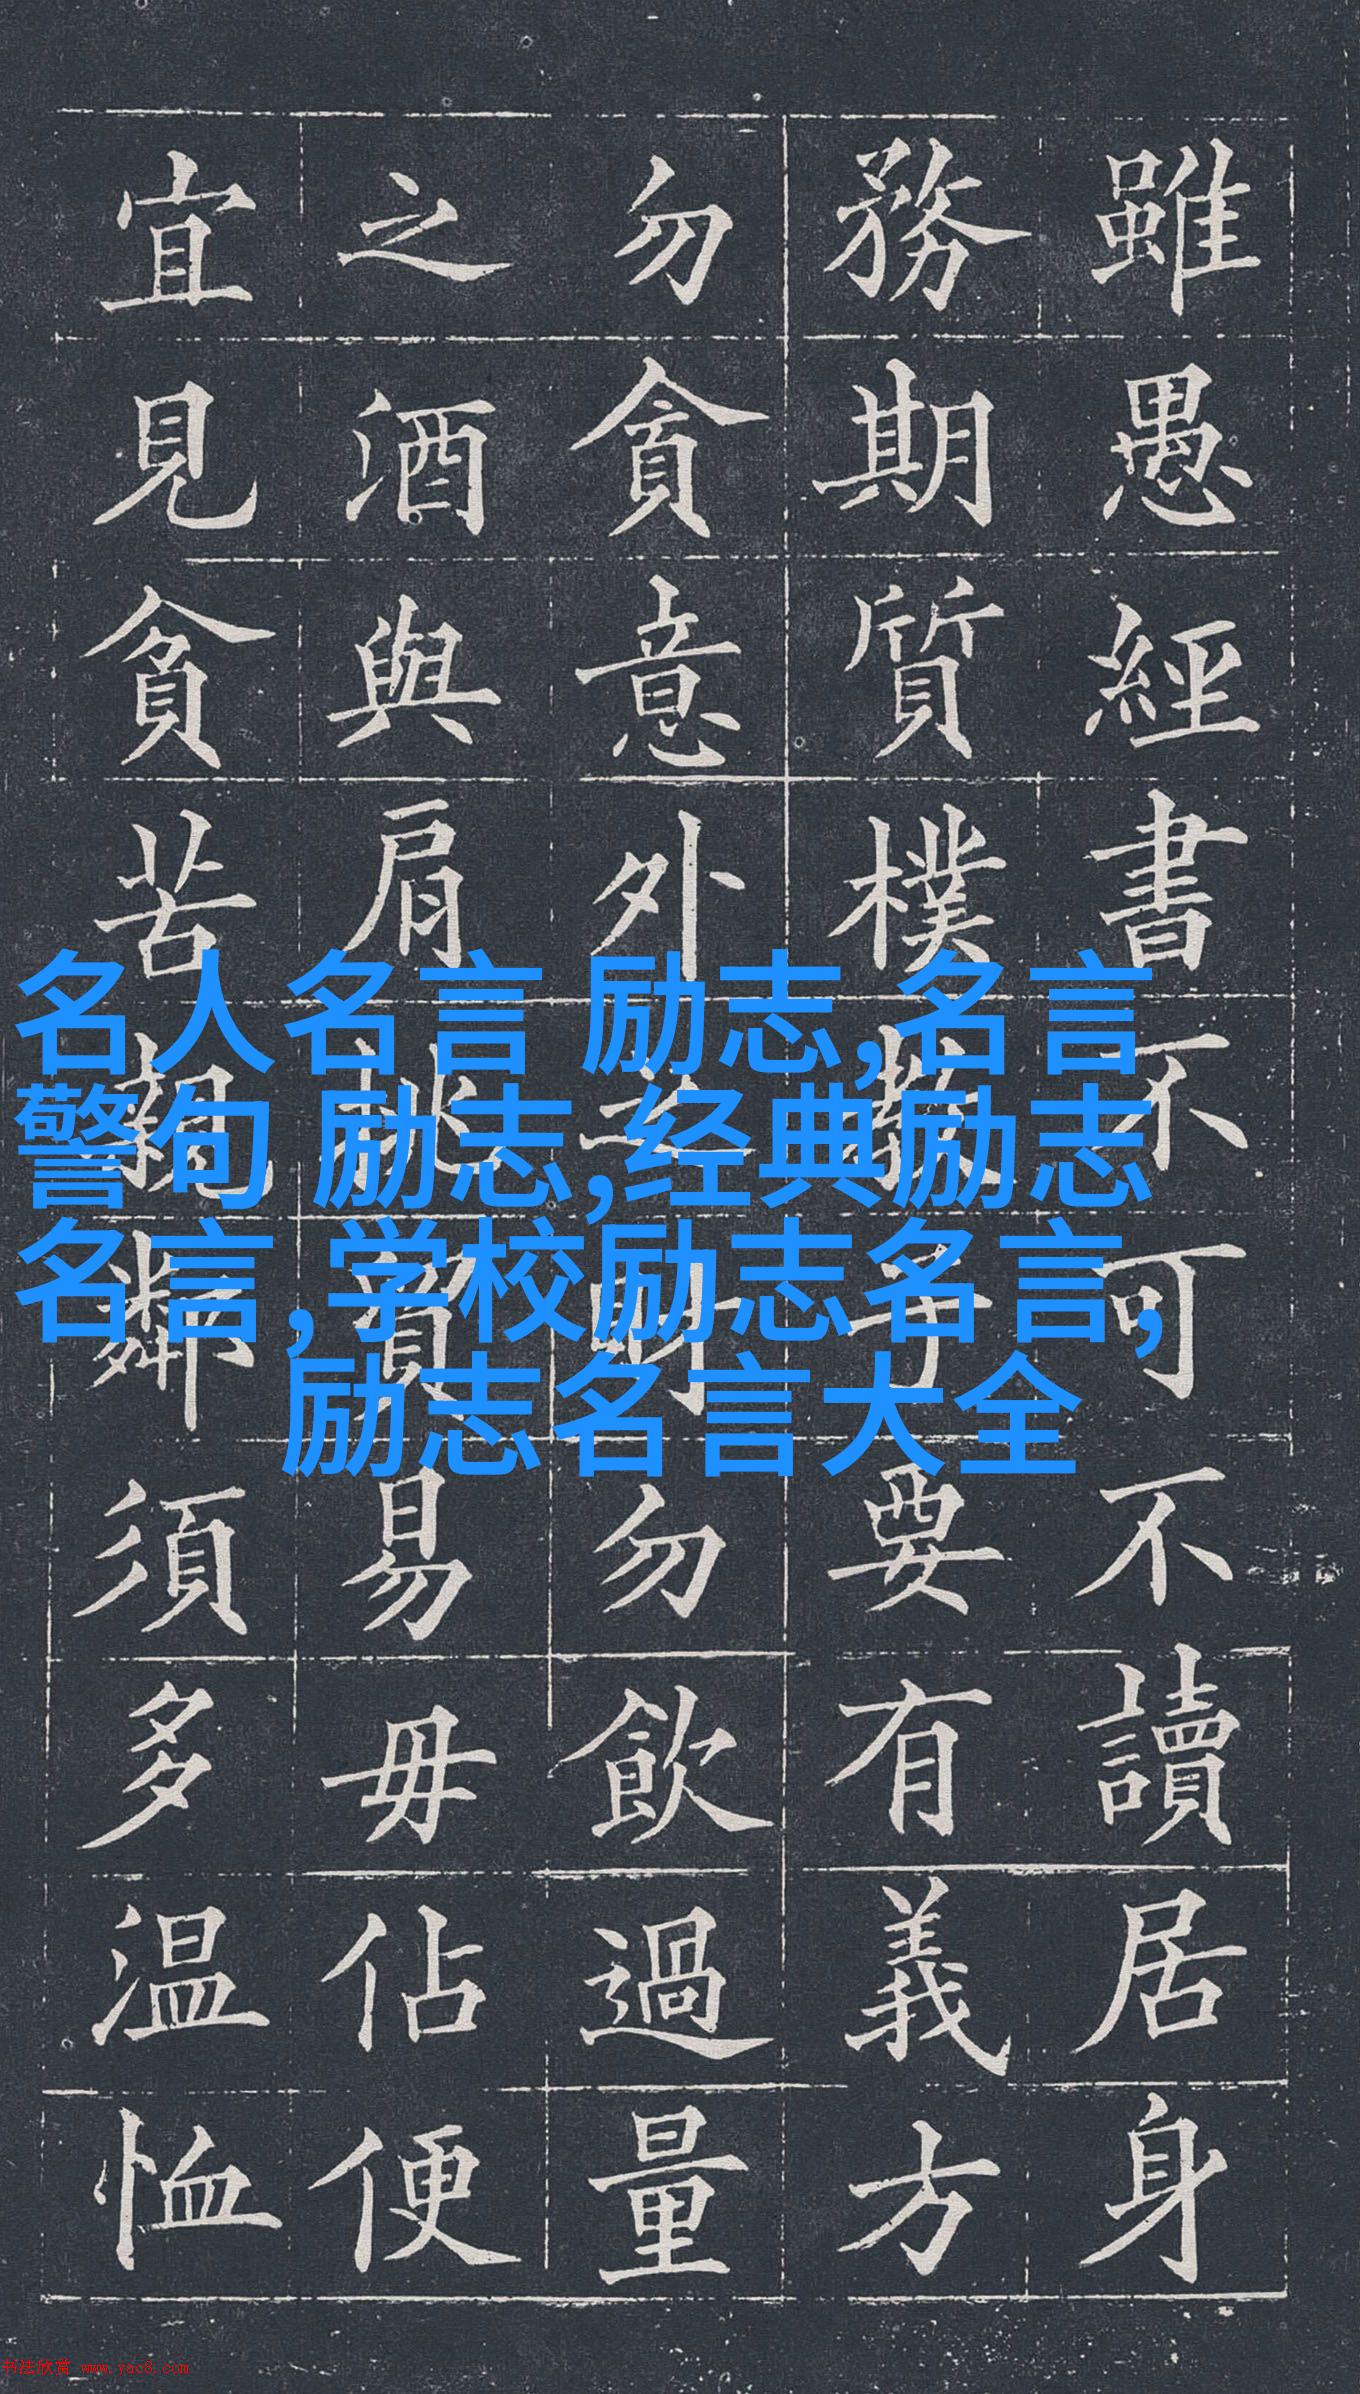 雖愚經書不可不讀居身
務期質樸教子要有義方
勿貪意外之財勿飲過量
之酒與肩挑貿易毋佔便
宜見貧苦親鄰須多温恤
名人名言 励志,名言
警句 励志,经典励志
名言,学校励志名言,
励志名言大全
书法欣赏 www.yac8.com